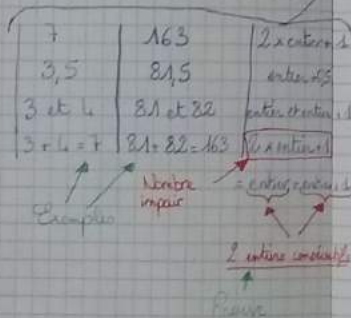 7 163 2 x entier + 1
3,5 81,5 entier + 0,5
3 et 4 81 et 82 entier et entier + 1
3 + 4 = 7 81 + 82 = 163 2 x entier + 1
Exemples Nombre impair = entier + entier + 1
2 entiers consécutifs
Preuve